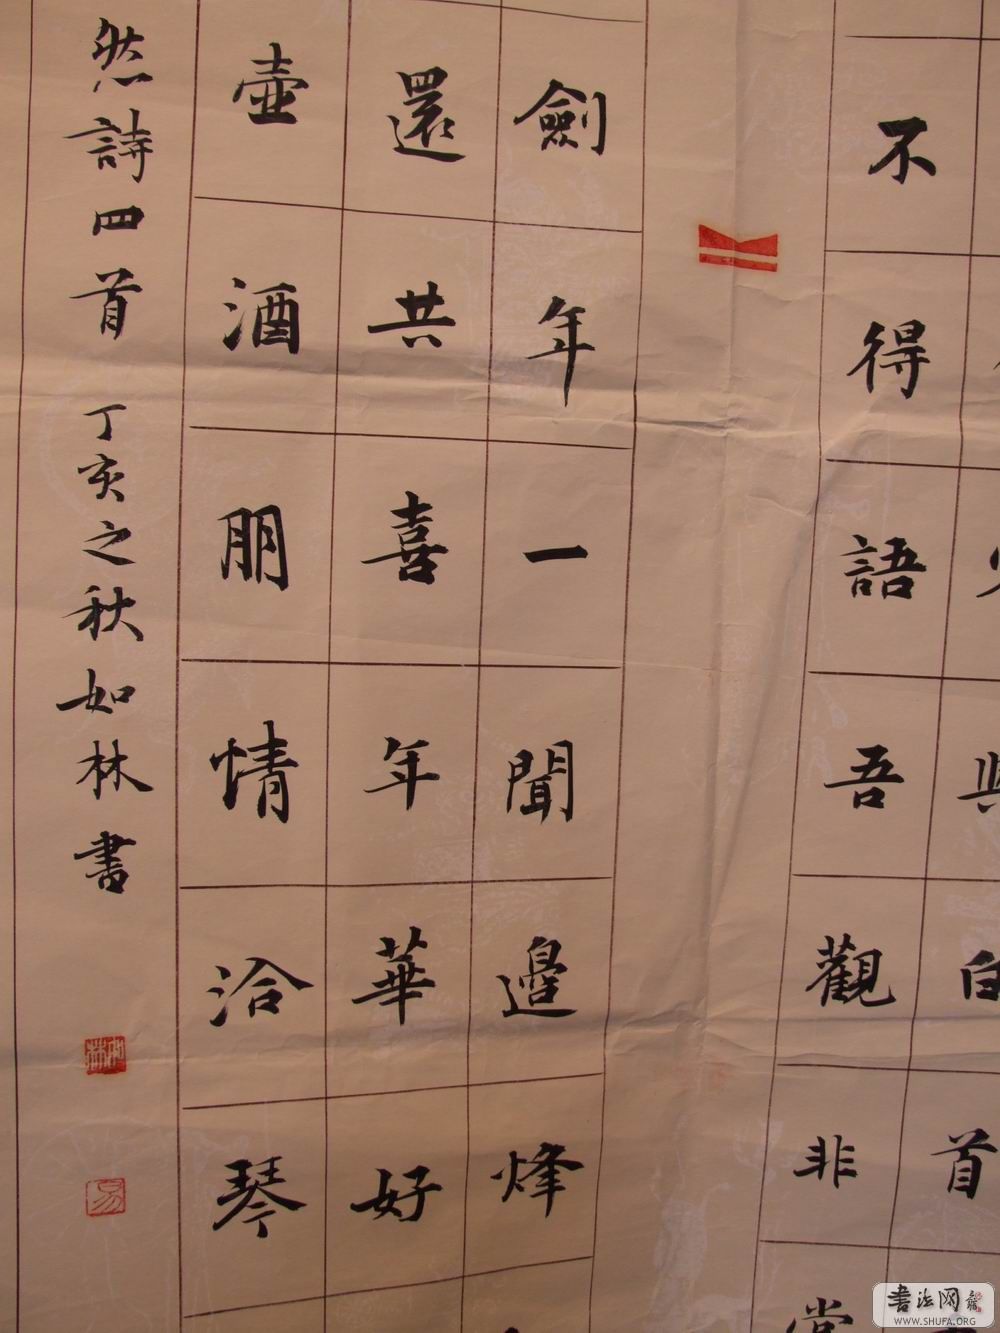 首
不得語吾觀非
劍年一聞邊烽
還共喜年華好
壺酒朋情洽琴
然詩四首 丁亥之秋如林書
書法网
WWW.SHUFA.ORG